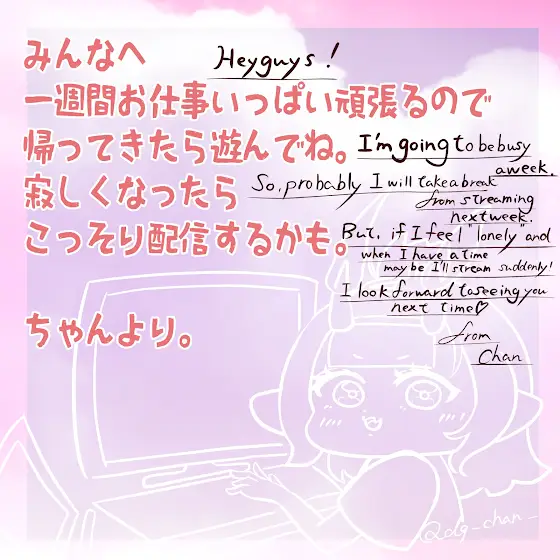 みんなへ
一週間お仕事いっぱい頑張るので
帰ってきたら遊んでね。
寂しくなったら
こっそり配信するかも。
ちゃんより。
Hey guys!
I'm going to be busy
a week.
So, probably I will take a break
from streaming
next week.
But, if I feel "lonely" and
when I have a time
may be I'll stream suddenly!
I look forward to seeing you
next time♡
from
Chan